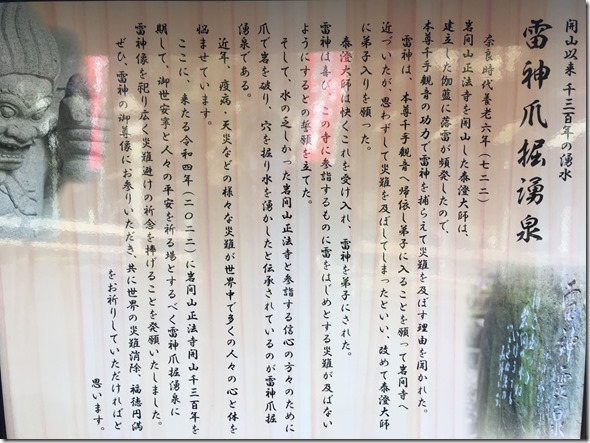 開山以来 千三百年の湧水
雷神爪掘湧泉
奈良時代養老六年（七二二）
岩間山正法寺を開山した泰澄大師は、
建立した伽藍に落雷が頻発したので、
本尊千手観音の功力で雷神を捕らえて災難を及ぼす理由を聞かれた。
雷神は、本尊千手観音へ帰依し弟子に入ることを願って岩間寺へ
近づいたが、思わずして災難を及ぼしてしまったといい、改めて泰澄大師
に弟子入りを願った。
泰澄大師は快くこれを受け入れ、雷神を弟子にされた。
雷神は喜び、この寺に参詣するものに雷をはじめとする災難が及ばない
ようにするとの誓願を立てた。
そして、水の乏しかった岩間山正法寺と参詣する信心の方々のために
爪で岩を破り、穴を掘り、水を湧かしたと伝承されているのが雷神爪掘
湧泉である。
近年、疫病・天災などの様々な災難が世界中で多くの人々の心と体を
悩ませています。
ここに、来たる令和四年（二〇二二）に岩間山正法寺開山千三百年を
期して、御世安寧と人々の平安を祈る場とするべく雷神爪掘湧泉に
雷神像を祀り広く災難避けの祈念を捧げることを発願いたしました。
ぜひ、雷神の御尊像にお参りいただき、共に世界の災難消除、福徳円満
をお祈りしていただければと
思います。